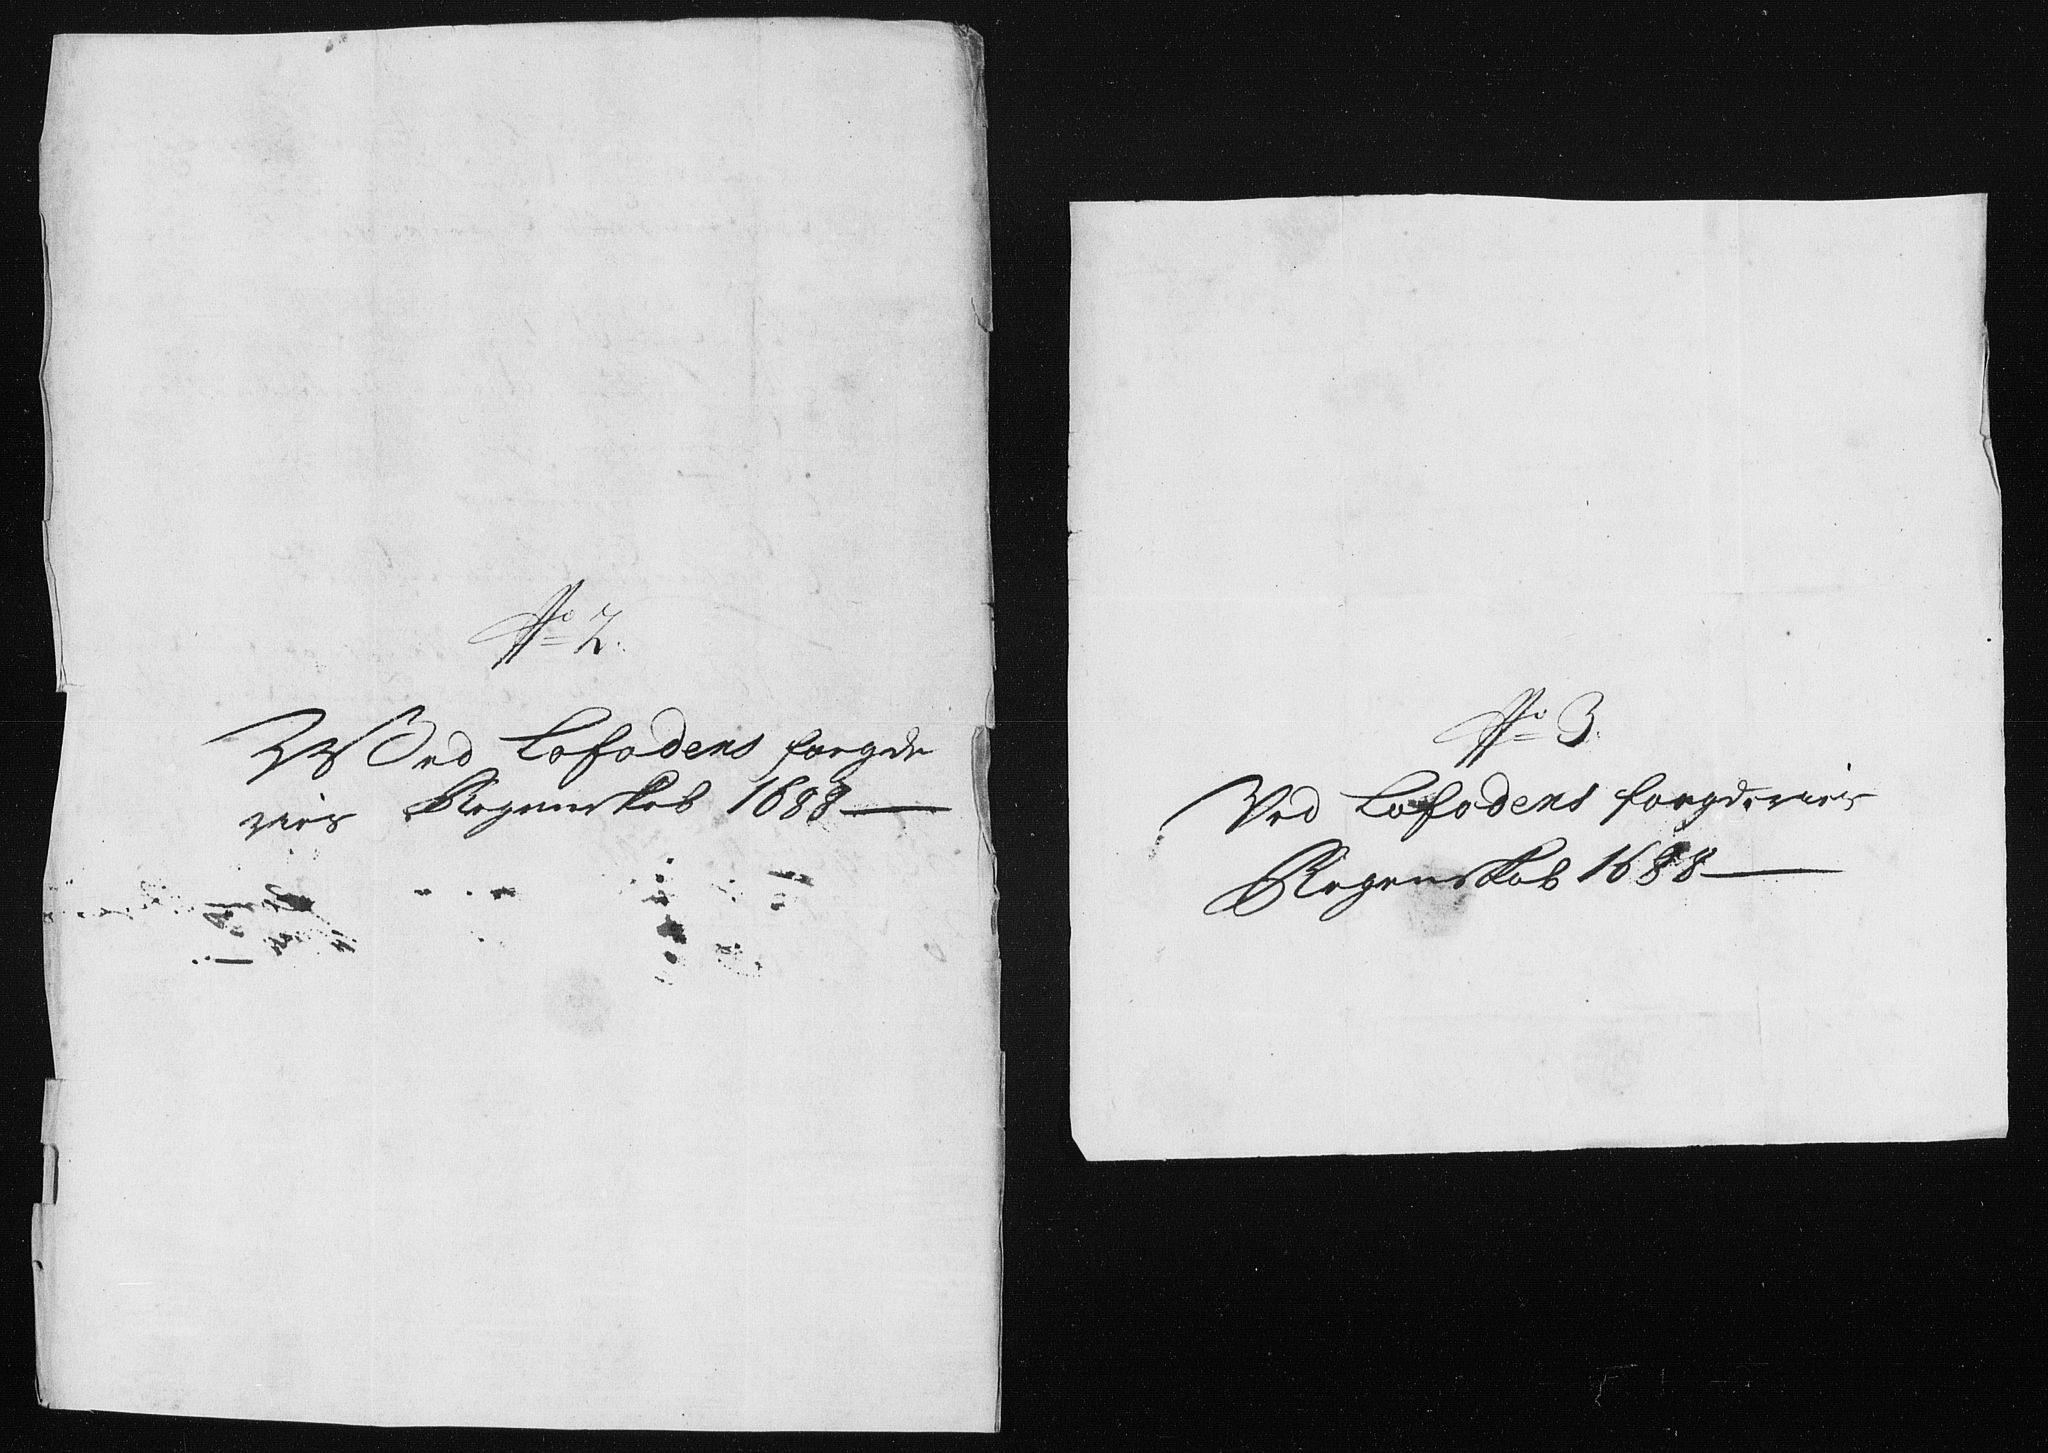 No 2.
Ved Lofodens fougde
ries Regenskab 1688
No 3.
Ved Lofodens fougderies
Regenskab 1688